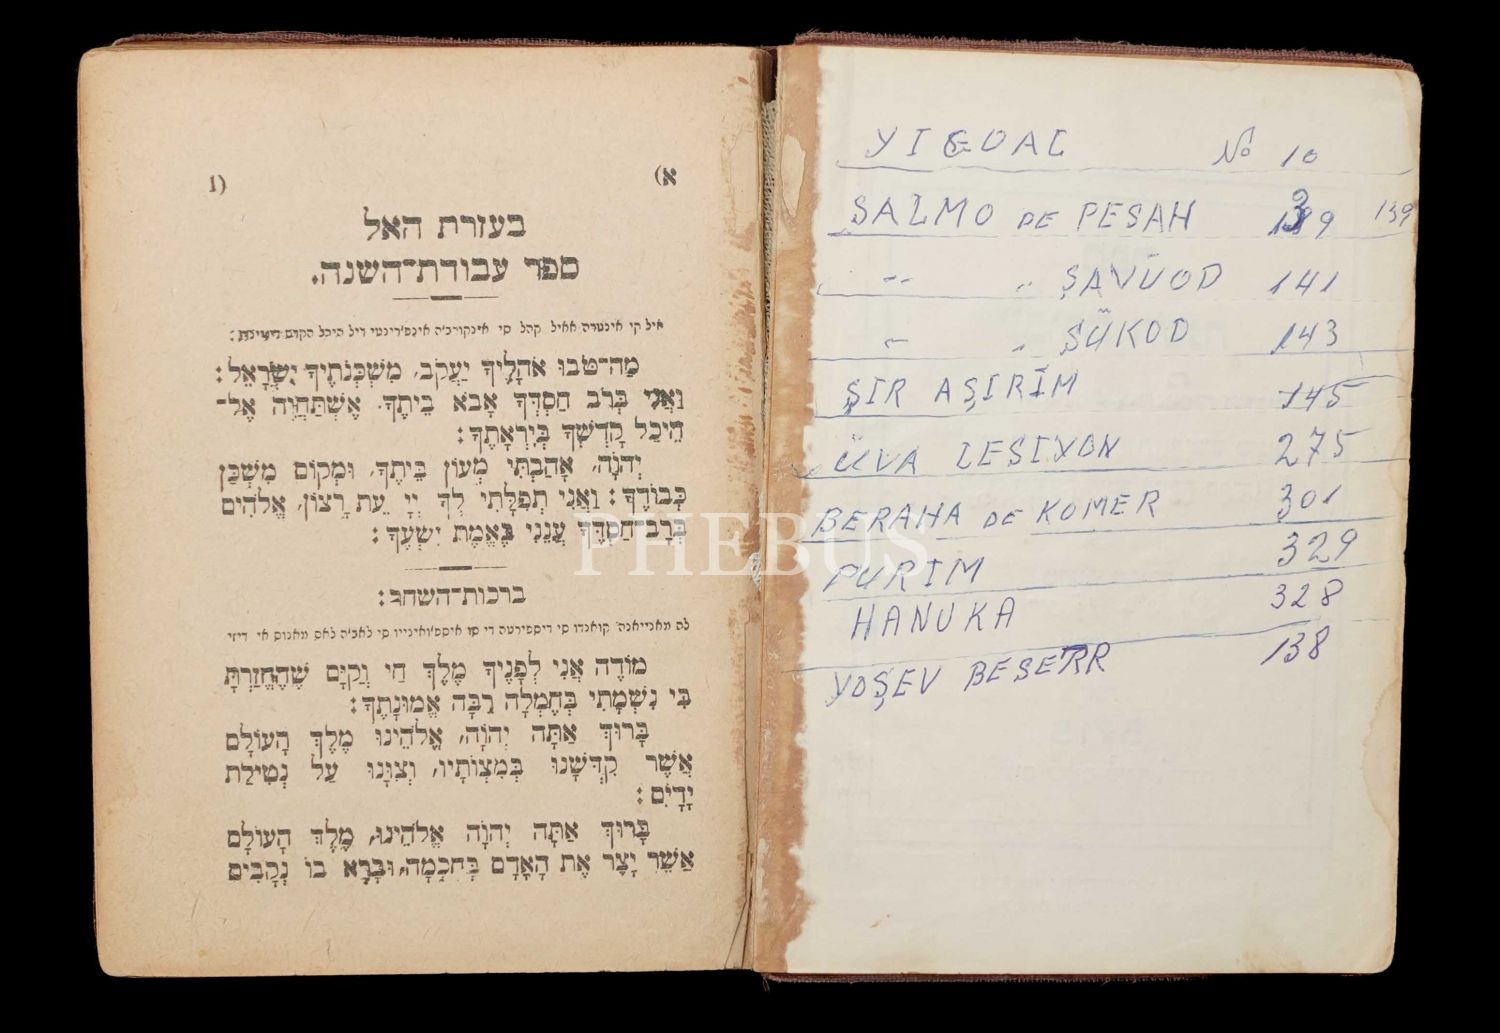 א)
1)
בעזרת האל
ספר עבודת־השנה.
איל קי אינטרה אאיל קהל סי אינקורב׳ה אינפ׳רינטי דיל היכל הקדש
מַה־טֹּבוּ אֹהָלֶיךָ יַעֲקֹב, מִשְׁכְּנֹתֶיךָ יִשְׂרָאֵל:
וַאֲנִי בְּרֹב חַסְדְּךָ אָבֹא בֵיתֶךָ אֶשְׁתַּחֲוֶה אֶל־
הֵיכַל קָדְשְׁךָ בְּיִרְאָתֶךָ:
יְהֹוָה, אָהַבְתִּי מְעוֹן בֵּיתֶךָ, וּמְקוֹם מִשְׁכַּן
כְּבוֹדֶךָ: וַאֲנִי תְפִלָּתִי לְךָ יְיָ עֵת רָצוֹן, אֱלֹהִים
בְּרָב־חַסְדֶּךָ עֲנֵנִי בֶּאֱמֶת יִשְׁעֶךָ:
ברכות־השחר:
לה מאנייאנה קואנדו סי דיספירטה די סו איספ׳ואינייו סי לאב׳ה לאס מאנוס אי דיזי
מוֹדֶה אֲנִי לְפָנֶיךָ מֶלֶךְ חַי וְקַיָּם שֶׁהֶחֱזַרְתָּ
בִּי נִשְׁמָתִי בְּחֶמְלָה רַבָּה אֱמוּנָתֶךָ:
בָּרוּךְ אַתָּה יְהֹוָה, אֱלֹהֵינוּ מֶלֶךְ הָעוֹלָם
אֲשֶׁר קִדְּשָׁנוּ בְּמִצְוֹתָיו, וְצִוָּנוּ עַל נְטִילַת
יָדָיִם:
בָּרוּךְ אַתָּה יְהֹוָה אֱלֹהֵינוּ, מֶלֶךְ הָעוֹלָם
אֲשֶׁר יָצַר אֶת הָאָדָם בְּחִכְמָה, וּבָרָא בוֹ נְקָבִים
YIGDAL No 10
SALMO DE PESAH 139 139
" " ŞAVUOD 141
" " SÜKOD 143
ŞIR AŞIRİM 145
ÜVA LESIYON 275
BERAHA DE KOMER 301
PURIM 329
HANUKA 328
YOŞEV BESETR 138
PHEBUS